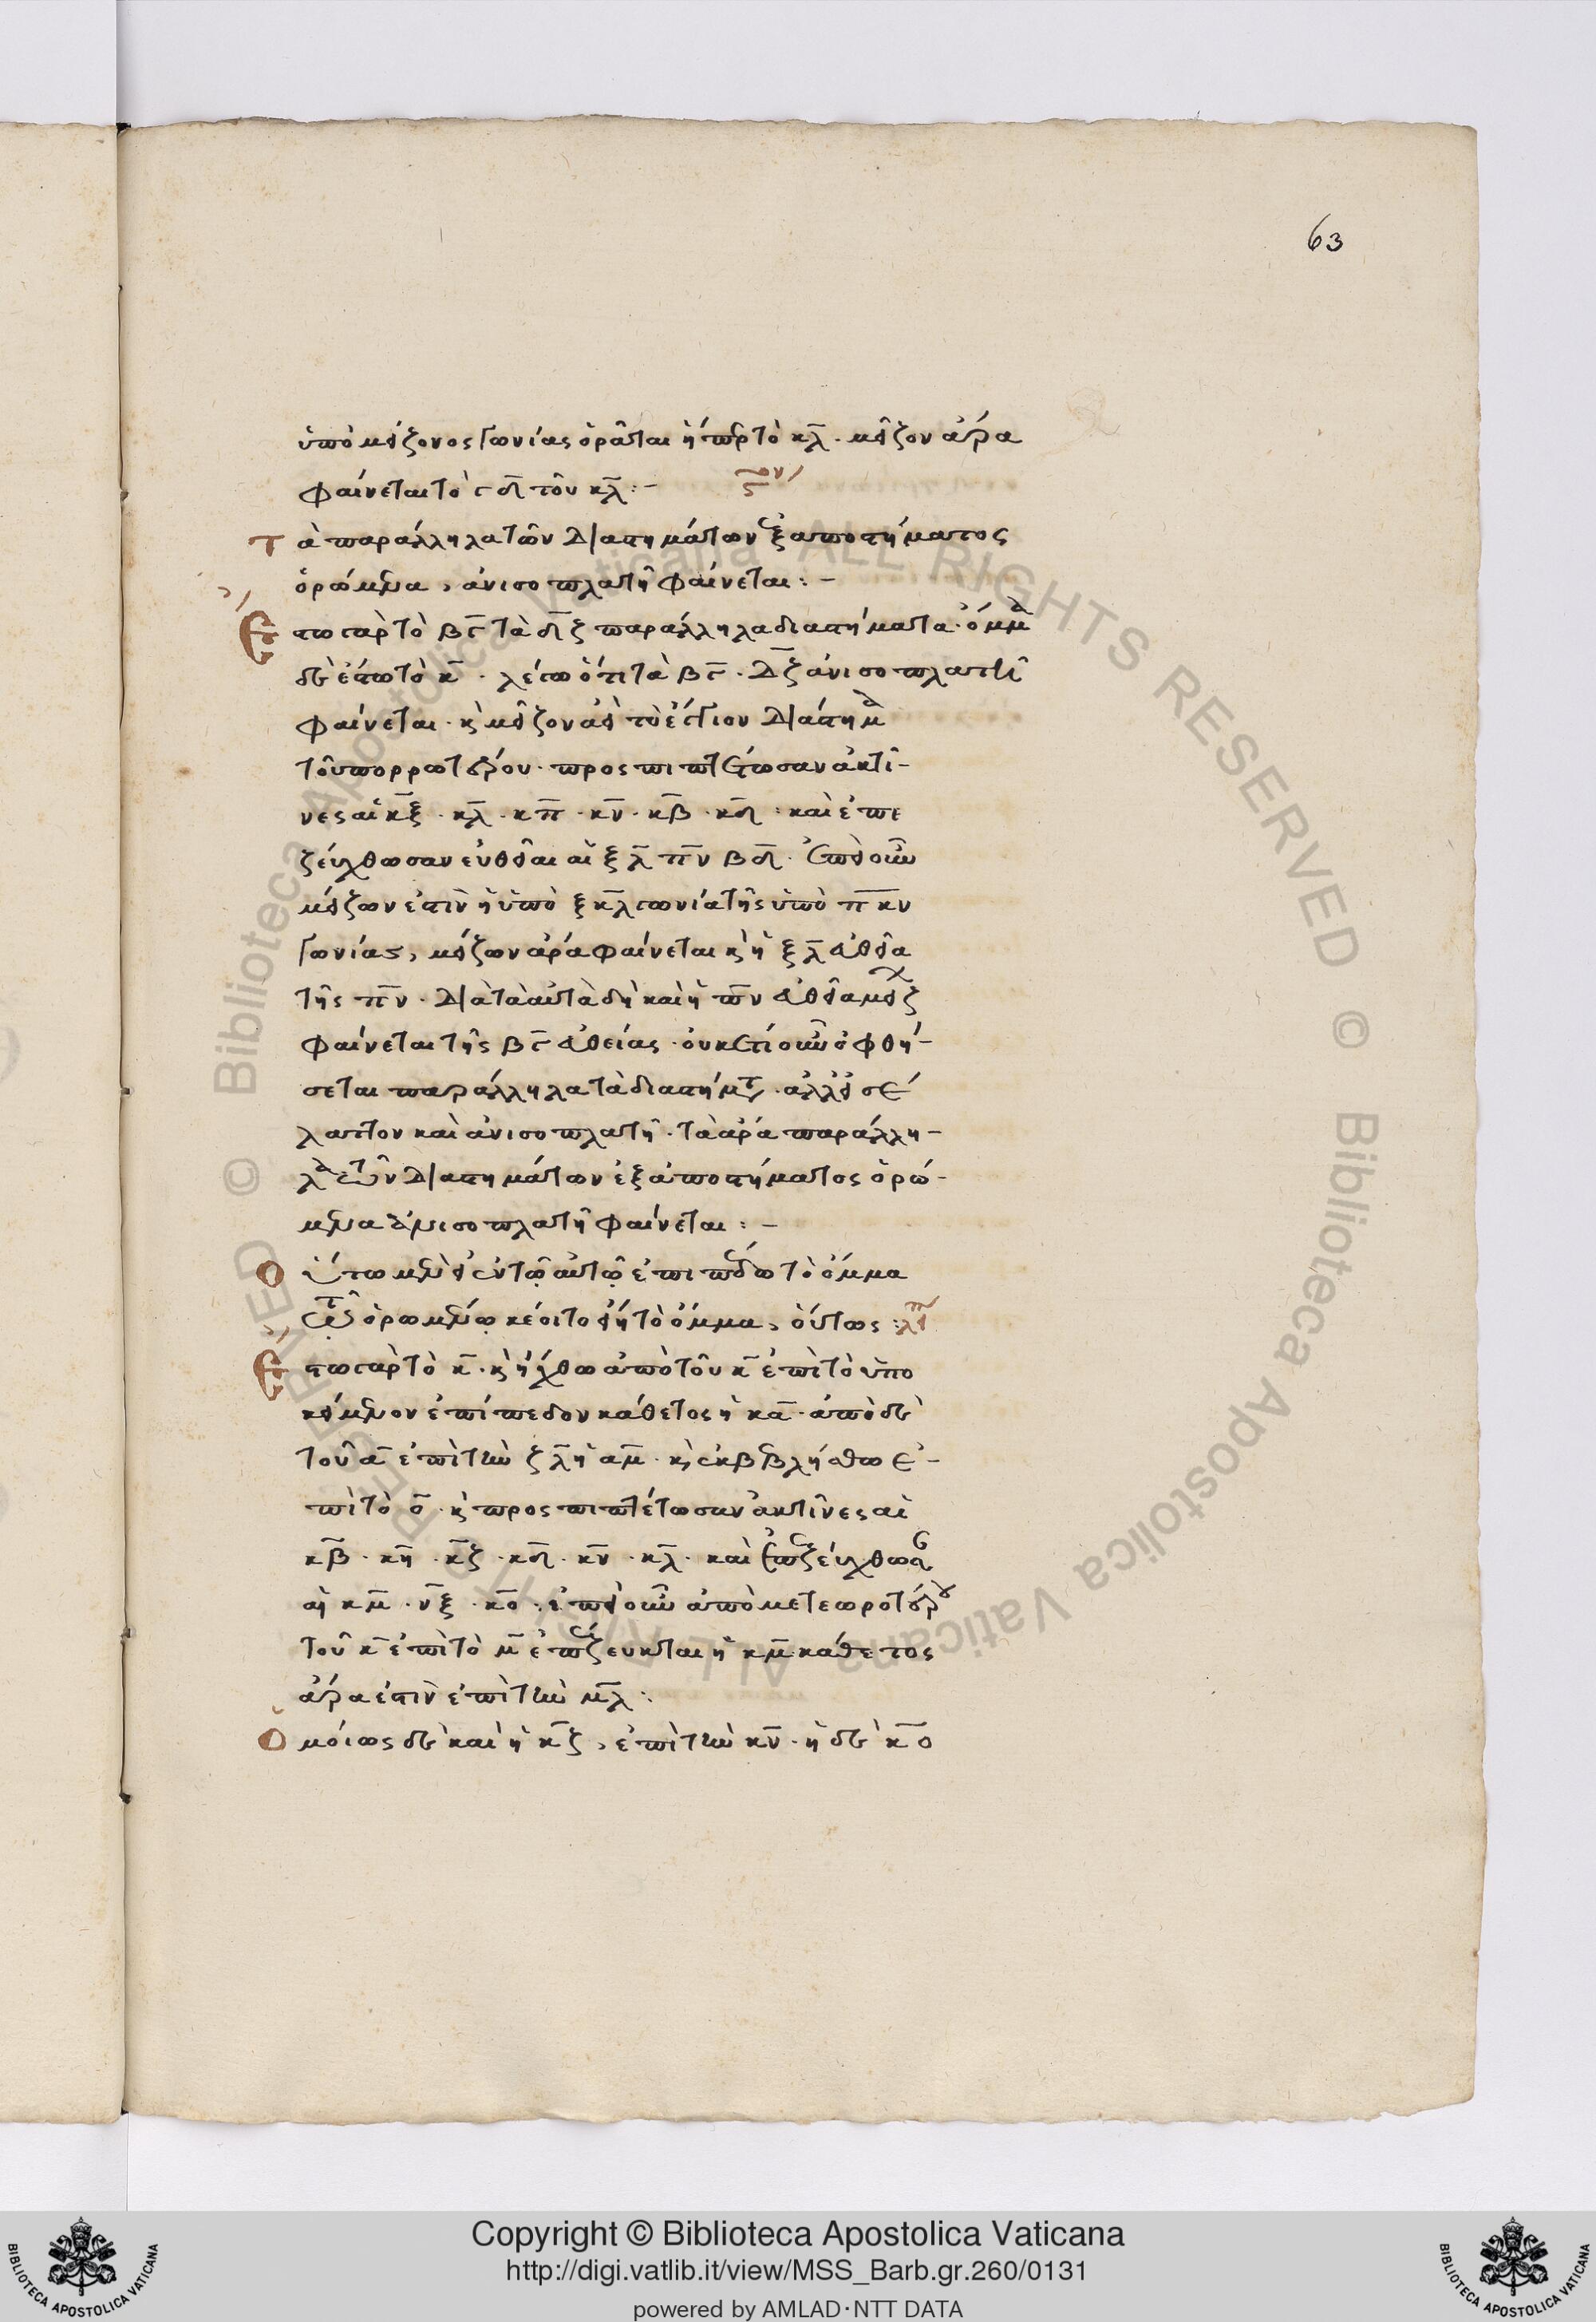 63
ὑπὸ μείζονος γωνίας ὁρᾶται ἤπερ τὸ κλ̅. μεῖζον ἄρα
φαίνεται τὸ γδ̅ τοῦ κλ̅:–
ϛ̅ον
Τὰ παράλληλα τῶν διαστημάτων ἐξ αποστήματος
ὁρώμενα, ἀνισοπλατῆ φαίνεται:–
Ἔστω γὰρ τὸ βγ̅ τὰ δ̅ζ παράλληλα διαστήματα. ὄμμα
δὲ ἔστω τὸ κ̅. λέγω ὅτι τὰ βγ̅. δ̅ζ ἀνισοπλατῆ
φαίνεται. κ̀ μεῖζον ἀεὶ τὸ ἔγγιον διάστημα
τοῦ πορρωτέρου. προσπιπτέτωσαν ἀκτῖ–
νες αἱ κ̅ξ. κλ̅. κπ̅. κν̅. κβ̅. κδ̅: καὶ ἐπε
ζεύχθωσαν εὐθεῖαι αἱ ξλ̅ π̅ν βδ̅. ἐπεὶ οὖν
μείζων ἐστὶν ἡ ὑπὸ ξκ̅λ γωνία τῆς ὑπὸ π̅κ̅ν
γωνίας, μείζων ἄρα φαίνεται κ̀ ἡ ξλ̅ εὐθεῖα
τῆς π̅ν. διὰ τὰ αὐτὰ δὴ καὶ ἡ π̅ν εὐθεῖα μείζων
φαίνεται τῆς βγ̅ εὐθείας. οὐκέτι οὖν ὀφθή–
σεται παράλληλα τὰ διαστήματα. ἀλλ' εἰς ἔ
λαττον καὶ ἀνισοπλατῆ. τὰ ἄρα παράλλη–
λα τῶν διαστημάτων ἐξ ἀποστήματος ὁρώ–
μενα ἀνισοπλατῆ φαίνεται:–
Οὕτω μὲν εἰ ἐν τῷ αὐτῷ ἐπιπέδω τὸ ὄμμα
τῷ ὁρωμένῳ κέοιτο εἰ ἢ τὸ ὄμμα, οὕτως:
Ἔστω γὰρ τὸ κ̅. κ̀ ἤχθω ἀπὸ τοῦ κ̅ ἐπὶ τὸ ὑπο
κείμενον ἐπίπεδον κάθετος ἡ κα̅. ἀπὸ δὲ
τοῦ α̅ ἐπὶ τὴν ζλ̅ ἡ αμ̅. κ̀ ἐκβεβλήσθω ἐ–
πὶ τὸ ο̅. κ̀ προσπιπτέτωσαν ἀκτῖνες αἱ
κ̅β. κη̅. κ̅ζ. κδ̅. κν̅. κλ̅. καὶ ἐπεζεύχθωσαν
αἱ κμ̅. ν̅ξ. κο̅. ἐπεὶ οὖν ἀπὸ μετεωροτέρου
τοῦ κ̅ ἐπὶ τὸ μ̅ ἐπέζευκται ἡ κμ̅. κάθετος
ἄρα ἐστὶν ἐπὶ τὴν μ̅λ:
Ὁμοίως δὲ καὶ ἡ κ̅ζ, ἐπὶ τὴν κν̅. ἡ δὲ κ̅ο
Copyright © Biblioteca Apostolica Vaticana
http://digi.vatlib.it/view/MSS_Barb.gr.260/0131
powered by AMLAD·NTT DATA